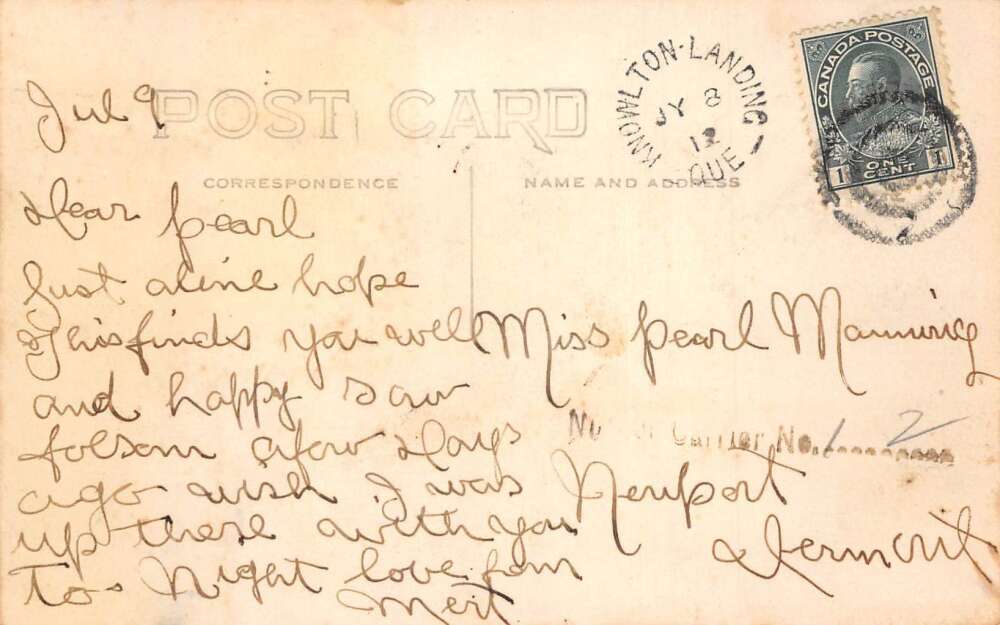 Jul 9
POST CARD
CORRESPONDENCE
NAME AND ADDRESS
KNOWLTON-LANDING
JY 8
12
QUE
CANADA POSTAGE
1 ONE CENT 1
Dear Pearl
Just a line hope
This finds you well
and happy saw
folsom a few Days
ago wish I was
up there with you
To Night love from
Mert
Miss Pearl Manning
Carrier No. 12
Newport
Vermont